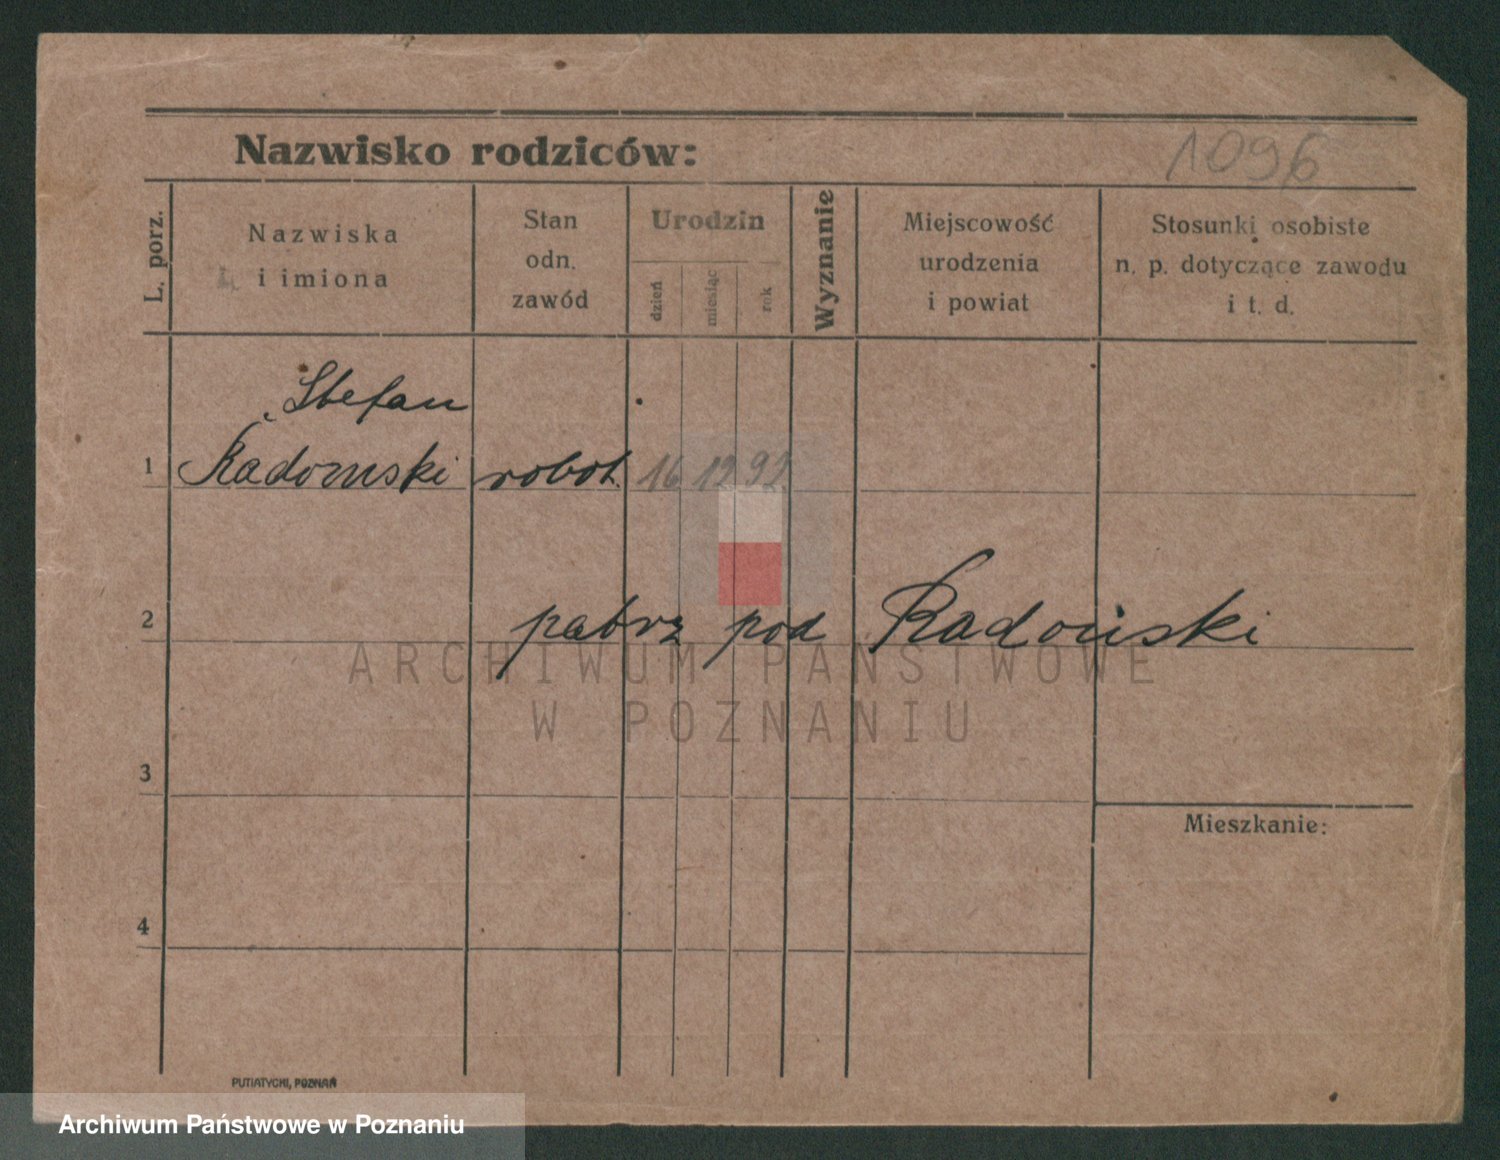 Nazwisko rodziców:
1096
L. porz.
Nazwiska
i imiona
Stan
odn.
zawód
Urodzin
dzień
miesiąc
rok
Wyznanie
Miejscowość
urodzenia
i powiat
Stosunki osobiste
n. p. dotyczące zawodu
i t. d.
Stefan
1 Radomski robot. 16 12 92
2 patrz pod Radoński
ARCHIWUM PAŃSTWOWE
W POZNANIU
3
Mieszkanie:
4
PUTIATYCKI, POZNAŃ
Archiwum Państwowe w Poznaniu